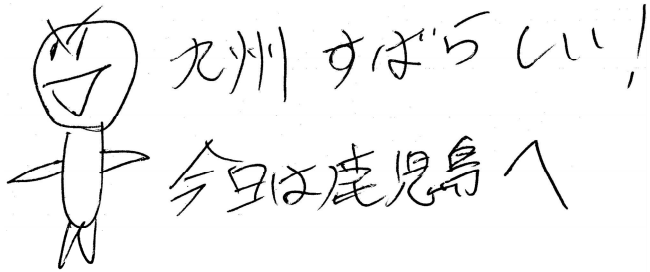 九州 すばらしい!
今日は鹿児島へ